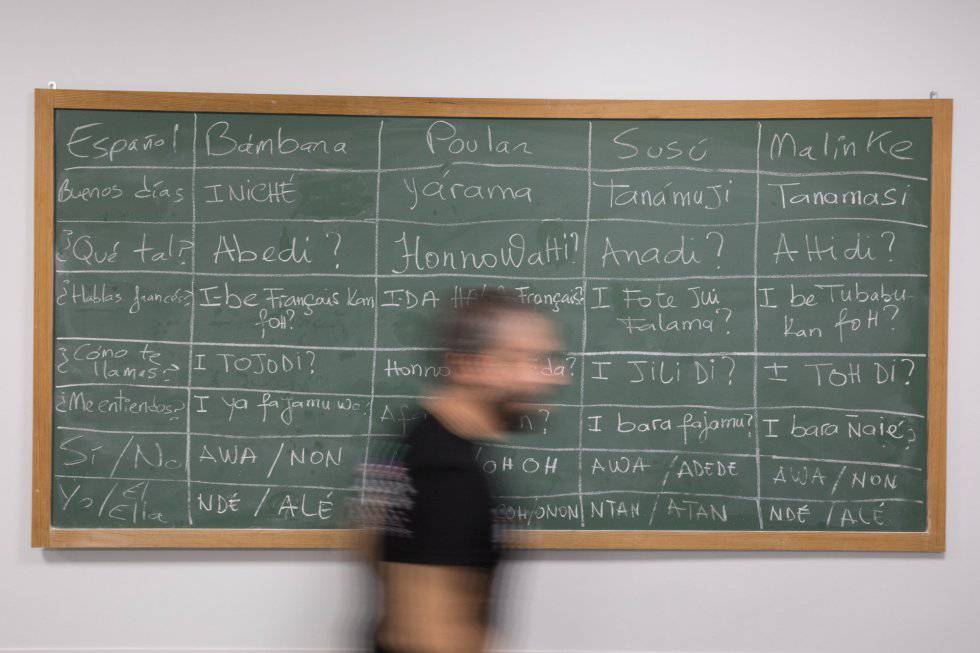 Español Bámbana Poular Susú Malinke
Buenos días INICHÉ yárama Tanámuji Tanamasi
¿Qué tal? Abedi? HonnoWatti? Anadi? Attidi?
¿Hablas francés? I-be Français Kan I-DA Français? I Fote Jui I be Tubabu
foH? Falama? Kan foH?
¿Cómo te llamas? I TOJODI? Honno I JiLi Di? I TOH DI?
¿Me entiendes? I ya fajamu wo? I bara fajamu? I bara Ñaié?
Sí/No AWA / NON OHOH AWA / ADEDE AWA / NON
Yo/Él/Ella NDÉ / ALÉ /ONON NTAN / ATAN NDÉ / ALÉ